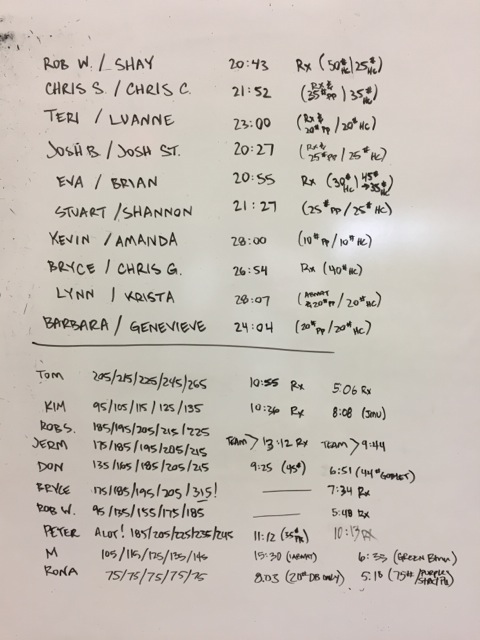 ROB W. / SHAY 20:43 Rx (50# HC / 25# HC)
CHRIS S. / CHRIS C. 21:52 (Rx & 35# PP / 35# HC)
TERI / LUANNE 23:00 (Rx & 20# PP / 20# HC)
JOSH B / JOSH ST. 20:27 (Rx & 25# PP / 25# HC)
EVA / BRIAN 20:55 Rx (30# HC / 45# → 35# HC)
STUART / SHANNON 21:27 (25# PP / 25# HC)
KEVIN / AMANDA 28:00 (10# PP / 10# HC)
BRYCE / CHRIS G. 26:54 Rx (40# HC)
LYNN / KRISTA 28:07 (ABMAT & 20# PP / 20# HC)
BARBARA / GENEVIEVE 24:04 (20# PP / 20# HC)
TOM 205/215/225/245/265 10:55 Rx 5:06 Rx
KIM 95/105/115/125/135 10:36 Rx 8:08
ROB S. 185/195/205/215/225
JERM 175/185/195/205/215 TEAM > 13:12 Rx TEAM > 9:44
DON 135/165/185/205/215 9:25 (45#) 6:51 (44# GOBLET)
BRYCE 175/185/195/205/315! — 7:34 Rx
ROB W. 95/135/155/175/185 — 5:48 Rx
PETER ALOT! 185/205/225/235/245 11:12 (35# PR) 10:13 Rx
M 105/115/125/135/145 15:30 (ABMAT) 6:33 (GREEN BAND)
RONA 75/75/75/75/75 8:03 (20# DB ONLY) 5:18 (75# / PURPLE)